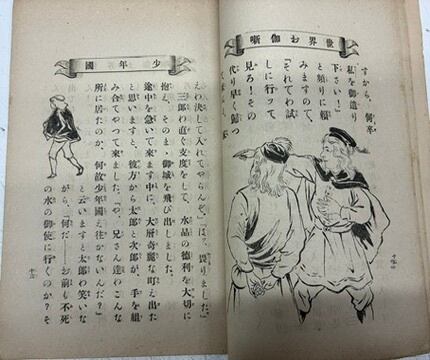 世界お伽噺
すから、何卒
私を御遣り
下さい！」
と頻りに頼
みますので、
「それでわ試
しに行って
見ろ、その
代り早く歸つ
少年國
えわ決して入れてやらんぞ。」「はツ、畏りました。」
三郎わ直ぐ支度をして、水晶の德利を大切に
抱え、そのまゝ御城を飛び出しました。
途中を急いで來ます中に、大層奇麗な町え出た
と思いますと、彼方から太郎と次郎が、手を組
み合てやって來ました。「や、兄さん達わこんな
所に居たのか、何故少年國え往かないんだ？」
と云いますと太郎わ笑いな
がら、「何だ――お前も不死
の水の御使に行くのか？そ